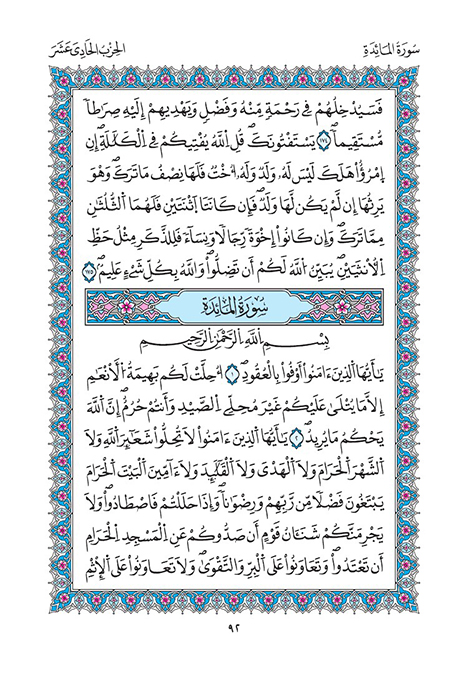 سُورَةُ المَائِدَةِ
الحِزْبُ الحَادِي عَشَرَ
فَسَيُدْخِلُهُمْ فِي رَحْمَةٍ مِّنْهُ وَفَضْلٍ وَيَهْدِيهِمْ إِلَيْهِ صِرَٰطاً
مُّسْتَقِيماًۖ ١٧٤ يَسْتَفْتُونَكَۖ قُلِ اِ۬للَّهُ يُفْتِيكُمْ فِي اِ۬لْكَلَٰلَةِۖ إِنِ
اِ۪مْرُؤٌاْ هَلَكَ لَيْسَ لَهُۥ وَلَدٞ وَلَهُۥٓ أُخْتٞ فَلَهَا نِصْفُ مَا تَرَكَۖ وَهُوَ
يَرِثُهَآ إِن لَّمْ يَكُن لَّهَا وَلَدٞۖ فَإِن كَانَتَا اَ۪ثْنَتَيْنِ فَلَهُمَا اَ۬لثُّلُثَٰنِ
مِمَّا تَرَكَۖ وَإِن كَانُوٓاْ إِخْوَةٗ رِّجَالٗا وَنِسَآءٗ فَلِلذَّكَرِ مِثْلُ حَظِّ
اِ۬لْأُنثَيَيْنِۖ يُبَيِّنُ اُ۬للَّهُ لَكُمْ أَن تَضِلُّواْۖ وَاللَّهُ بِكُلِّ شَيْءٍ عَلِيمٞۖ ١٧٥
سُورَةُ المَائِدَةِ
بِسْمِ اِ۬للَّهِ اِ۬لرَّحْمَٰنِ اِ۬لرَّحِيمِ
يَٰٓأَيُّهَا اَ۬لذِينَ ءَامَنُوٓاْ أَوْفُواْ بِالْعُقُودِۖ ١ أُحِلَّتْ لَكُم بَهِيمَةُ اُ۬لْأَنْعَٰمِ
إِلَّا مَا يُتْلَىٰ عَلَيْكُمْ غَيْرَ مُحِلِّي اِ۬لصَّيْدِ وَأَنتُمْ حُرُمٌۖ إِنَّ اَ۬للَّهَ
يَحْكُمُ مَا يُرِيدُۖ ٢ يَٰٓأَيُّهَا اَ۬لذِينَ ءَامَنُواْ لَا تُحِلُّواْ شَعَٰٓئِرَ اَ۬للَّهِ وَلَا
اَ۬لشَّهْرَ اَ۬لْحَرَامَ وَلَا اَ۬لْهَدْيَ وَلَا اَ۬لْقَلَٰٓئِدَ وَلَآ ءَآمِّينَ اَ۬لْبَيْتَ اَ۬لْحَرَامَ
يَبْتَغُونَ فَضْلٗا مِّن رَّبِّهِمْ وَرِضْوَٰناٗۖ وَإِذَا حَلَلْتُمْ فَاصْطَادُواْۖ وَلَا
يَجْرِمَنَّكُمْ شَنَـَٔانُ قَوْمٍ أَن صَدُّوكُمْ عَنِ اِ۬لْمَسْجِدِ اِ۬لْحَرَامِ
أَن تَعْتَدُواْۖ وَتَعَاوَنُواْ عَلَى اَ۬لْبِرِّ وَالتَّقْوَىٰۖ وَلَا تَعَاوَنُواْ عَلَى اَ۬لْإِثْمِ
٩٢